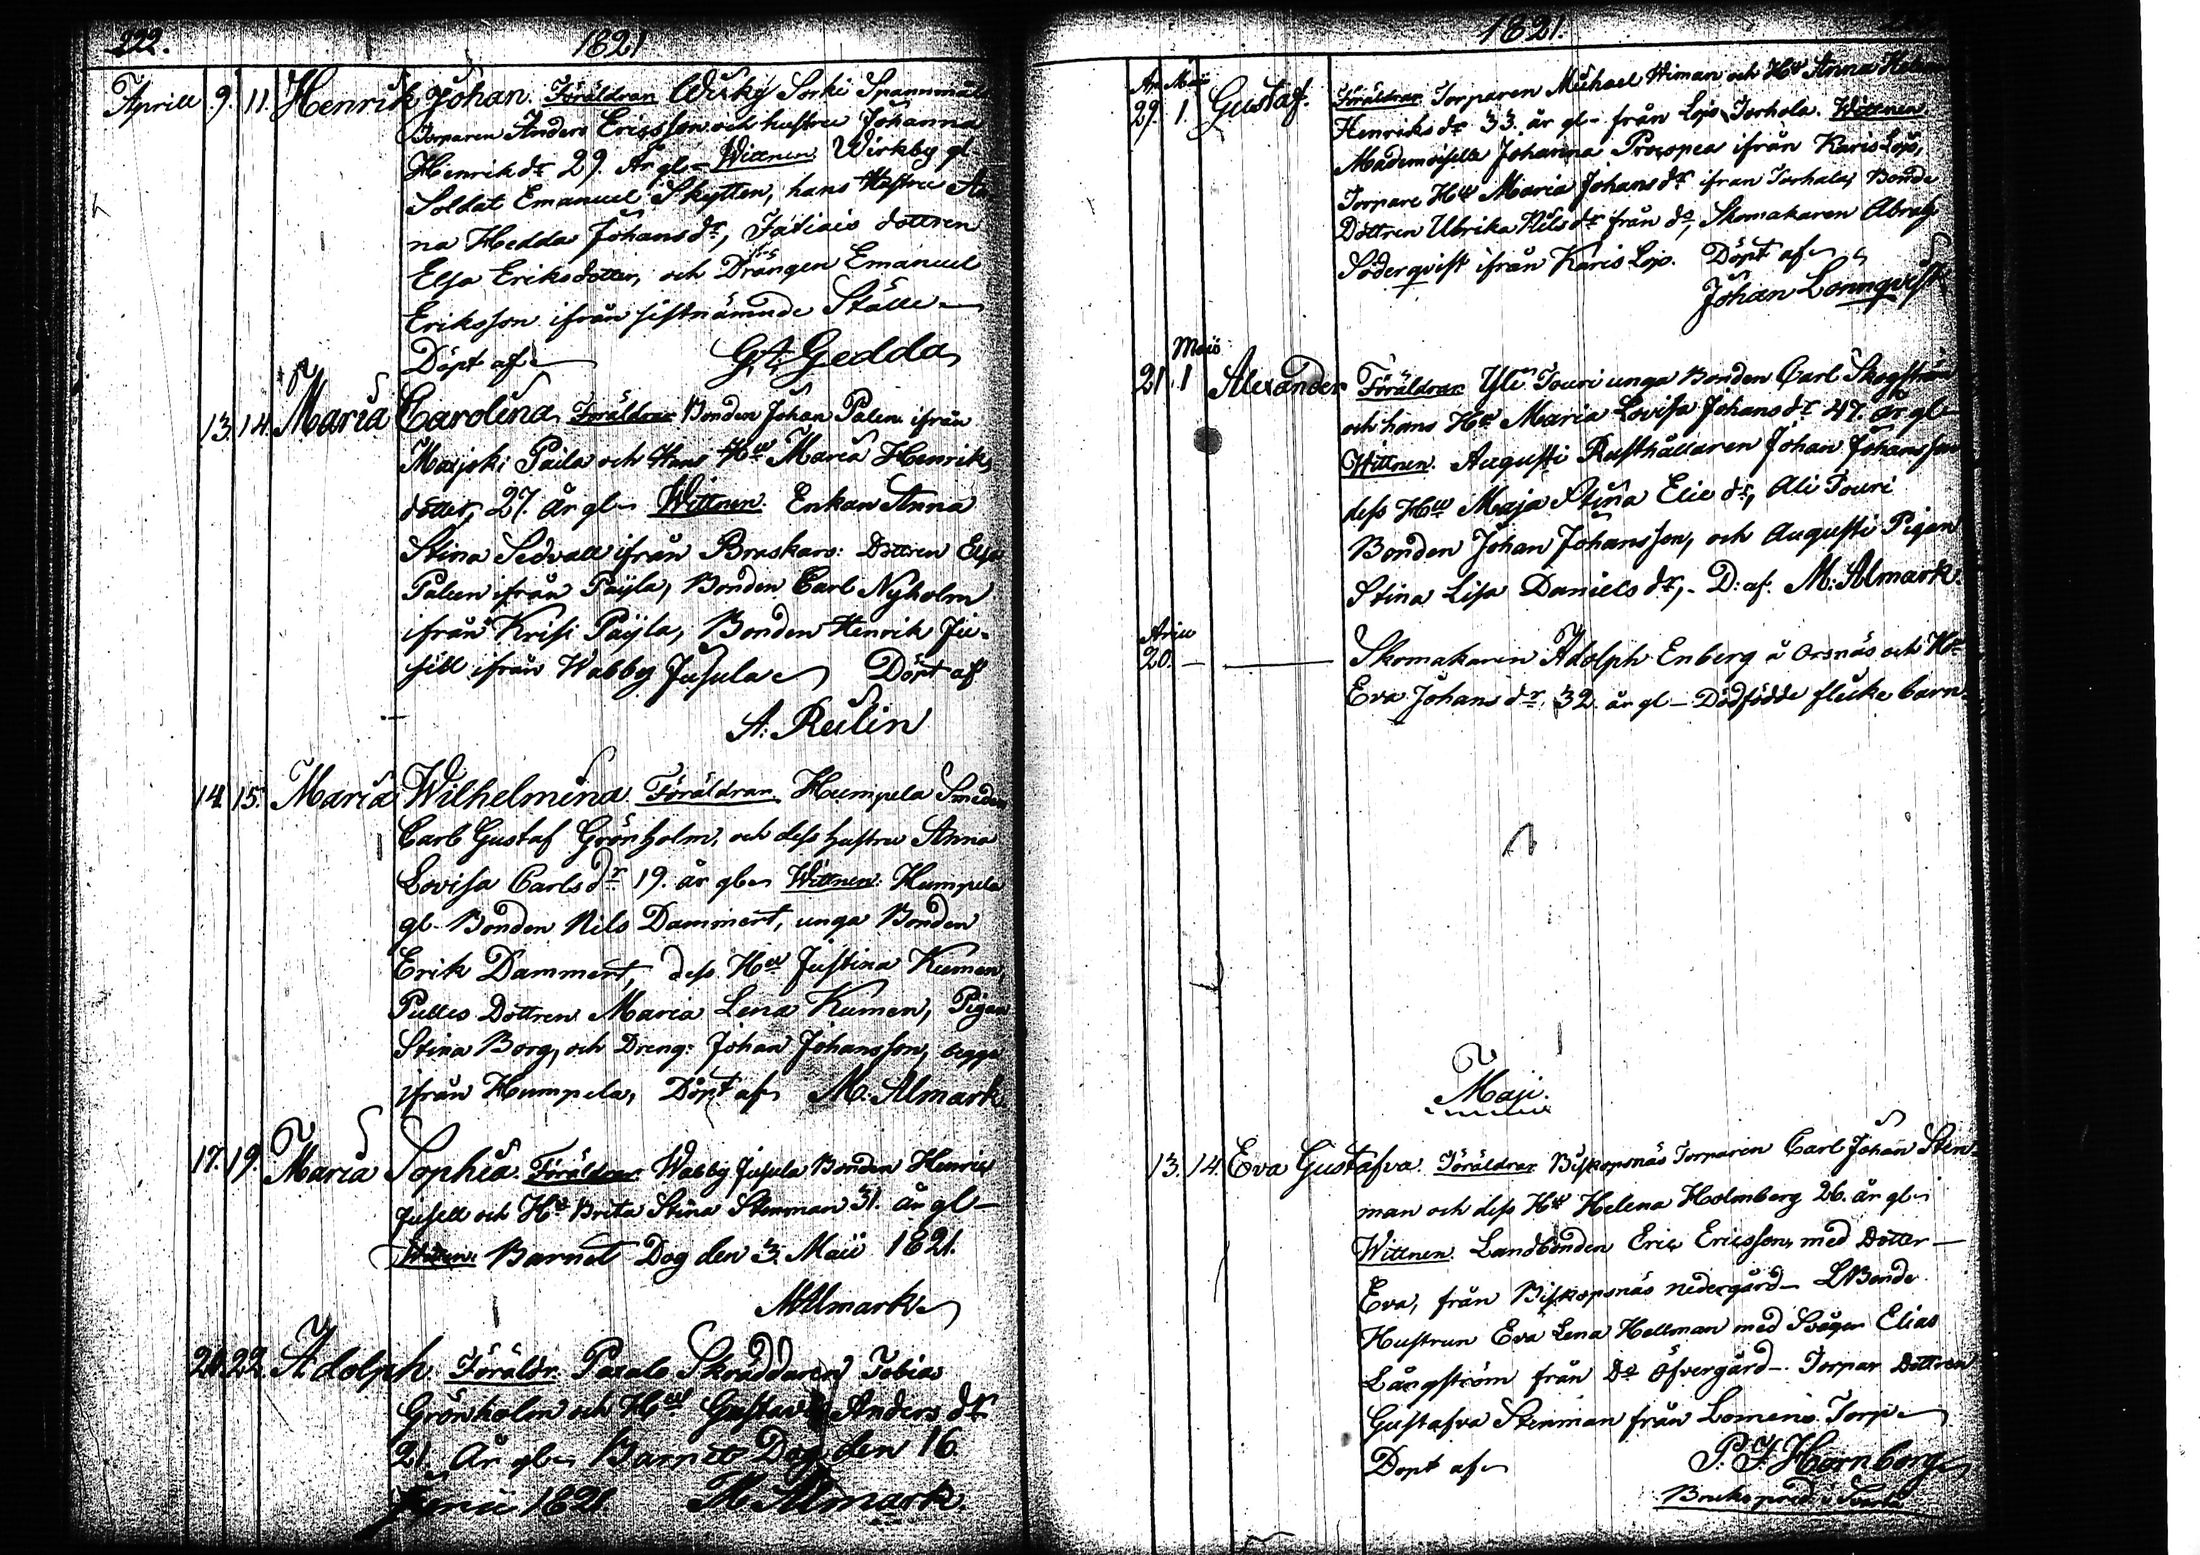 222.
1821
Aprill 9. 11. Henrik Johan. Föräldrar Wirkby Sorki Spanmåls
Torparen Anders Ericsson och hustru Johanna
Henriksdr 29. År gl- Wittnen Wirkby gl
Soldat Emanuel Skytten, hans Hustru An
na Hedda Johans dr, Dottren
Elsa Eriksdotter, och Drängen Emanuel
Eriksson ifrån sistnämnde Ställe
Döpt af G.A. Gedda
13. 14. Maria Carolina. Föräldrar Bonden Johan Palen ifrån
Maijoki Paila och Hans Hu Maria Henriks
dotter, 27. år gl- Wittnen. Enkan Anna
Stina Sedvall ifrån Dottren Elsa
Palen ifrån Payla, Bonden Carl Nyholm
ifrån Krisi Päyla, Bonden Henrik Ju-
sell ifrån Wabby Jusula Döpt af
A: Relin
14. 15. Maria Wilhelmina. Föräldrar. Humpela Smeden
Carl Gustaf Grönholm, och dess hustru Anna
Lovisa Carls dr 19. år gl- Wittnen: Humpela
gl- Bonden Nils Dammert, unga Bonden
Erik Dammert, dess Hu Justina Kumen,
Pulles Dottren Maria Lena Kumen, Pigan
Stina Borg, och Dreng: Johan Johansson, begge
ifrån Humpela, Döpt af M. Almark.
17. 19. Maria Sophia. Föräldrar Wabby Jusula Bonden Henric
Jusell och Hu Brita Stina Stenman 31. år gl-
Wittnen: Barnet Dog den 3. Maii 1821.
M Almark
22. Adolph. Föräldr. Skräddaren Tobias
Grönholm och Hu Anders dr
21. År gl- Barnet Dog den 16
Junii 1821 M Almark.
1821.
Ap. Maii
29. 1. Gustaf. Föräldrar Torparen Michael Wiman och Hu Anna
Henriks dr 33. år gl- från Lojo Torhola. Wittnen
Mademoiselle Johanna Procopea ifrån Karis Lojo,
Torpare Hu Maria Johans dr ifrån Torhola, Bonde
Dottren Ulrika Nils dr från do, Skomakaren Abrah
Söderqvist ifrån Karis Lojo. Döpt af
Johan Lönnqvist
Maii
21. 1 Alexander Föräldrar Yli Touri unga Bonden Carl Skogström
och hans Hu Maria Lovisa Johans dr 47. år gl-
Wittnen. Augusti Rusthållaren Johan Johansson
dess Hu Maja Stina Elie dr, Ali Touri
Bonden Johan Johansson, och Augusti Pigan
Stina Lisa Daniels dr,- D: af. M: Almark.
20. — Skomakaren Adolph Enberg å Orsnäs och Hu
Eva Johans dr. 32. år gl- Dödfödde flicke barn.
Maji.
13. 14. Eva Gustafva. Föräldrar Biskopsnäs Torparen Carl Johan Sten-
man och dess Hu Helena Holmberg 26. år gl-
Wittnen. Landbonden Eric Ericsson, med Dotter
Eva, från Biskopsnäs nedergård- LBonde
Hustrun Eva Lena Hellman med Svåger Elias
Långström från Do öfvergård-. Torpar Dottren
Gustafva Stenman från Lomens Torp
Döpt af P. J. Hornborg
Brukspred i Svartå